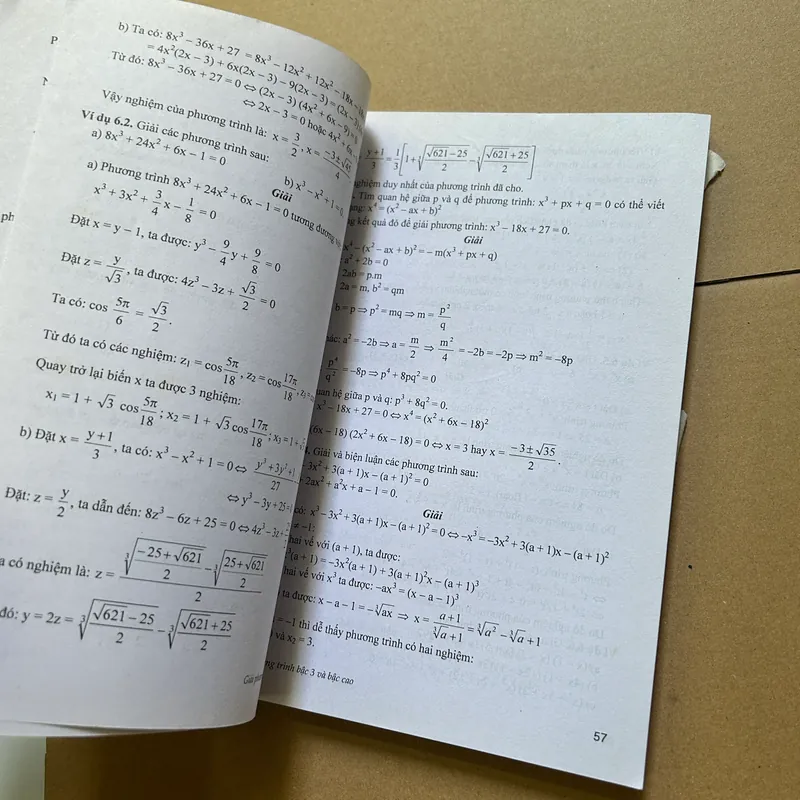 b) Ta có: 8x³ − 36x + 27 = 8x³ − 12x² + 12x² − 18x − 18x
= 4x²(2x − 3) + 6x(2x − 3) − 9(2x − 3) = (2x − 3)
Từ đó: 8x³ − 36x + 27 = 0 ⇔ (2x − 3) (4x² + 6x − 9) = 0
⇔ 2x − 3 = 0 hoặc 4x² + 6x
Vậy nghiệm của phương trình là: x = 3/2, x = (−3 ± √45)/4
Ví dụ 6.2. Giải các phương trình sau:
a) 8x³ + 24x² + 6x − 1 = 0
b) x³ − x² + 1 = 0
Giải
a) Phương trình 8x³ + 24x² + 6x − 1 = 0 tương đương
x³ + 3x² + 3/4 x − 1/8 = 0
Đặt x = y − 1, ta được: y³ − 9/4 y + 9/8 = 0
Đặt z = y/√3, ta được: 4z³ − 3z + √3/2 = 0
Ta có: cos 5π/6 = √3/2.
Từ đó ta có các nghiệm: z₁ = cos 5π/18, z₂ = cos 17π/18,
Quay trở lại biến x ta được 3 nghiệm:
x₁ = 1 + √3 cos 5π/18; x₂ = 1 + √3 cos 17π/18; x₃ = 1 +
b) Đặt x = (y+1)/3, ta có: x³ − x² + 1 = 0 ⇔ (y³+3y²+1)/27
⇔ y³ − 3y + 25 =
Đặt: z = y/2, ta dẫn đến: 8z³ − 6z + 25 = 0 ⇔ 4z³ − 3z +
a có nghiệm là: z = (∛((−25+√621)/2) − ∛((25+√621)/2))/2
đó: y = 2z = ∛((√621 − 25)/2) − ∛((√621 + 25)/2)
(y+1)/3 = 1/3 [1 + ∛((√621 − 25)/2) − ∛((√621 + 25)/2)]
nghiệm duy nhất của phương trình đã cho.
Tìm quan hệ giữa p và q để phương trình: x³ + px + q = 0 có thể viết
ạng: x⁴ = (x² − ax + b)²
ng kết quả đó để giải phương trình: x³ − 18x + 27 = 0.
Giải
x⁴ − (x² − ax + b)² = − m(x³ + px + q)
a² + 2b = 0
2ab = p.m
2a = m, b² = qm
b = p ⇒ p² = mq ⇒ m = p²/q
hác: a² = −2b ⇒ a = m/2 ⇒ m²/4 = −2b = −2p ⇒ m² = −8p
p⁴/q² = −8p ⇒ p⁴ + 8pq² = 0
quan hệ giữa p và q: p³ + 8q² = 0.
x³ − 18x + 27 = 0 ⇔ x⁴ = (x² + 6x − 18)²
(6x − 18) (2x² + 6x − 18) = 0 ⇔ x = 3 hay x = (−3 ± √35)/2.
Giải và biện luận các phương trình sau:
3x² + 3(a + 1)x − (a + 1)² = 0
2ax² + a²x + a − 1 = 0.
Giải
có: x³ − 3x² + 3(a + 1)x − (a + 1)² = 0 ⇔ −x³ = −3x² + 3(a + 1)x − (a + 1)²
≠ −1:
hai vế với (a + 1), ta được:
³(a + 1) = −3x²(a + 1) + 3(a + 1)²x − (a + 1)³
hai vế với x³ ta được: −ax³ = (x − a − 1)³
ta được: x − a − 1 = −∛ax ⇒ x = (a + 1)/(∛a + 1) = ∛a² − ∛a + 1
= −1 thì dễ thấy phương trình có hai nghiệm:
và x₂ = 3.
Giải
ng trình bậc 3 và bậc cao
57